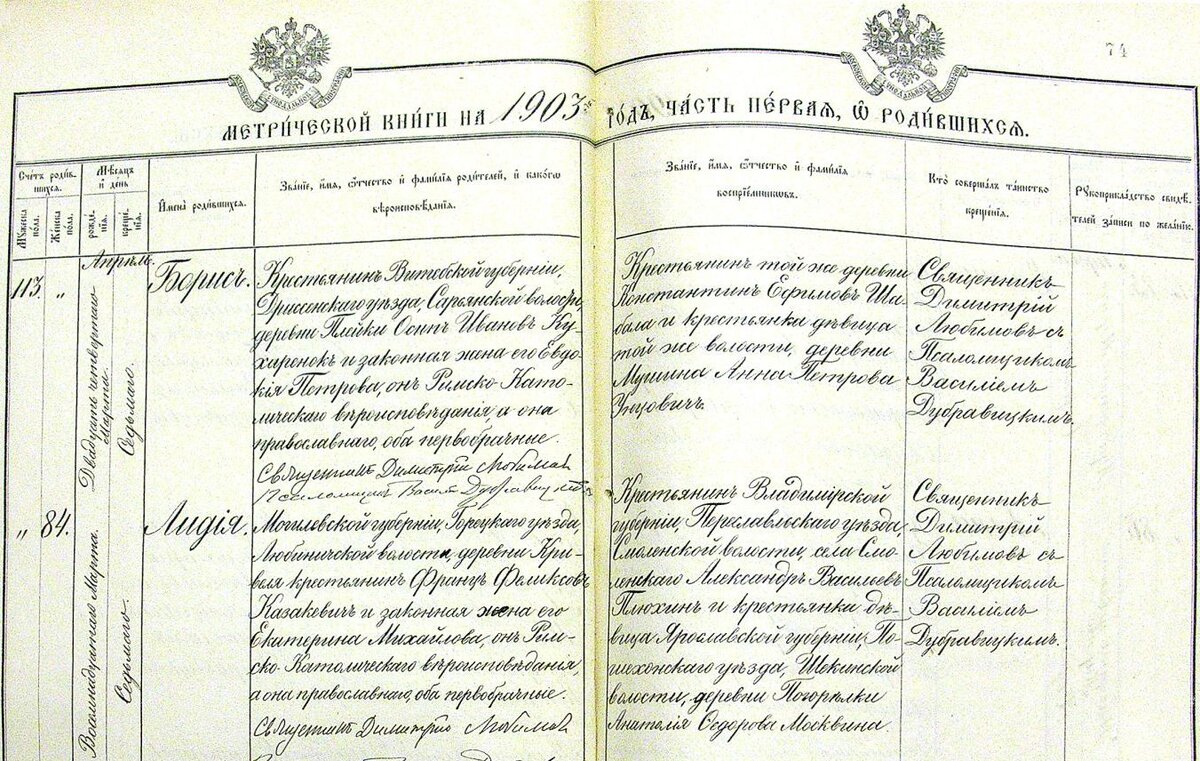 74
МЕТРИЧЕСКОЙ КНИГИ НА 1903й ГОДЪ, ЧАСТЬ ПЕРВАЯ, Ѡ РОДИВШИХСЯ.
Счетъ родив-
шихся.
Мужеска
пола.
Женска
пола.
Мѣсяцъ
и день
рожде-
нія.
креще-
нія.
Имена родившихся.
Званіе, имя, ѻтчество и фамилія родителей, и какого
вѣроисповѣданія.
Званіе, имя, ѻтчество и фамилія
воспріемниковъ.
Кто совершалъ таинство
крещенія.
Рукоприкладство свидѣ-
телей записи по желанію.
Апрѣль.
113.
"
Двадцать четвертаго
Марта.
Седьмаго.
Борисъ.
Крестьянинъ Витебской губерніи,
Дриссенскаго уѣзда, Сарьянской волости,
деревни Плейки Осипъ Ивановъ Ку-
харенокъ и законная жена его Евдо-
кія Петрова, онъ Римско-Като-
лическаго вѣроисповѣданія, а она
православнаго, оба первобрачные.
Священникъ Димитрій Любимовъ
Псаломщикъ Василій Дубравицкій
Крестьянинъ той же деревни
Константинъ Ефимовъ Ша-
бала и крестьянка дѣвица
той же волости, деревни
Анна Петрова
Священникъ
Димитрій
Любимовъ съ
Псаломщикомъ
Василіемъ
Дубравицкимъ.
"
84.
Восемнадцатаго Марта.
Седьмаго.
Лидія.
Могилевской губерніи, Горецкаго уѣзда,
Любиничской волости, деревни Кри-
вая крестьянинъ Францъ Феликсовъ
Казакевичъ и законная жена его
Екатерина Михайлова, онъ Рим-
ско-Католическаго вѣроисповѣданія,
а она православнаго, оба первобрачные.
Священникъ Димитрій Любимовъ
Крестьянинъ Владимірской
губерніи, Переславльскаго уѣзда,
Смоленской волости, села Смо-
ленскаго Александръ Васильевъ
Плюхинъ и крестьянка дѣ-
вица Ярославской губерніи, По-
шехонскаго уѣзда, Щекинской
волости, деревни Погорѣлки
Анатолія Ѳедорова Москвина.
Священникъ
Димитрій
Любимовъ съ
Псаломщикомъ
Василіемъ
Дубравицкимъ.